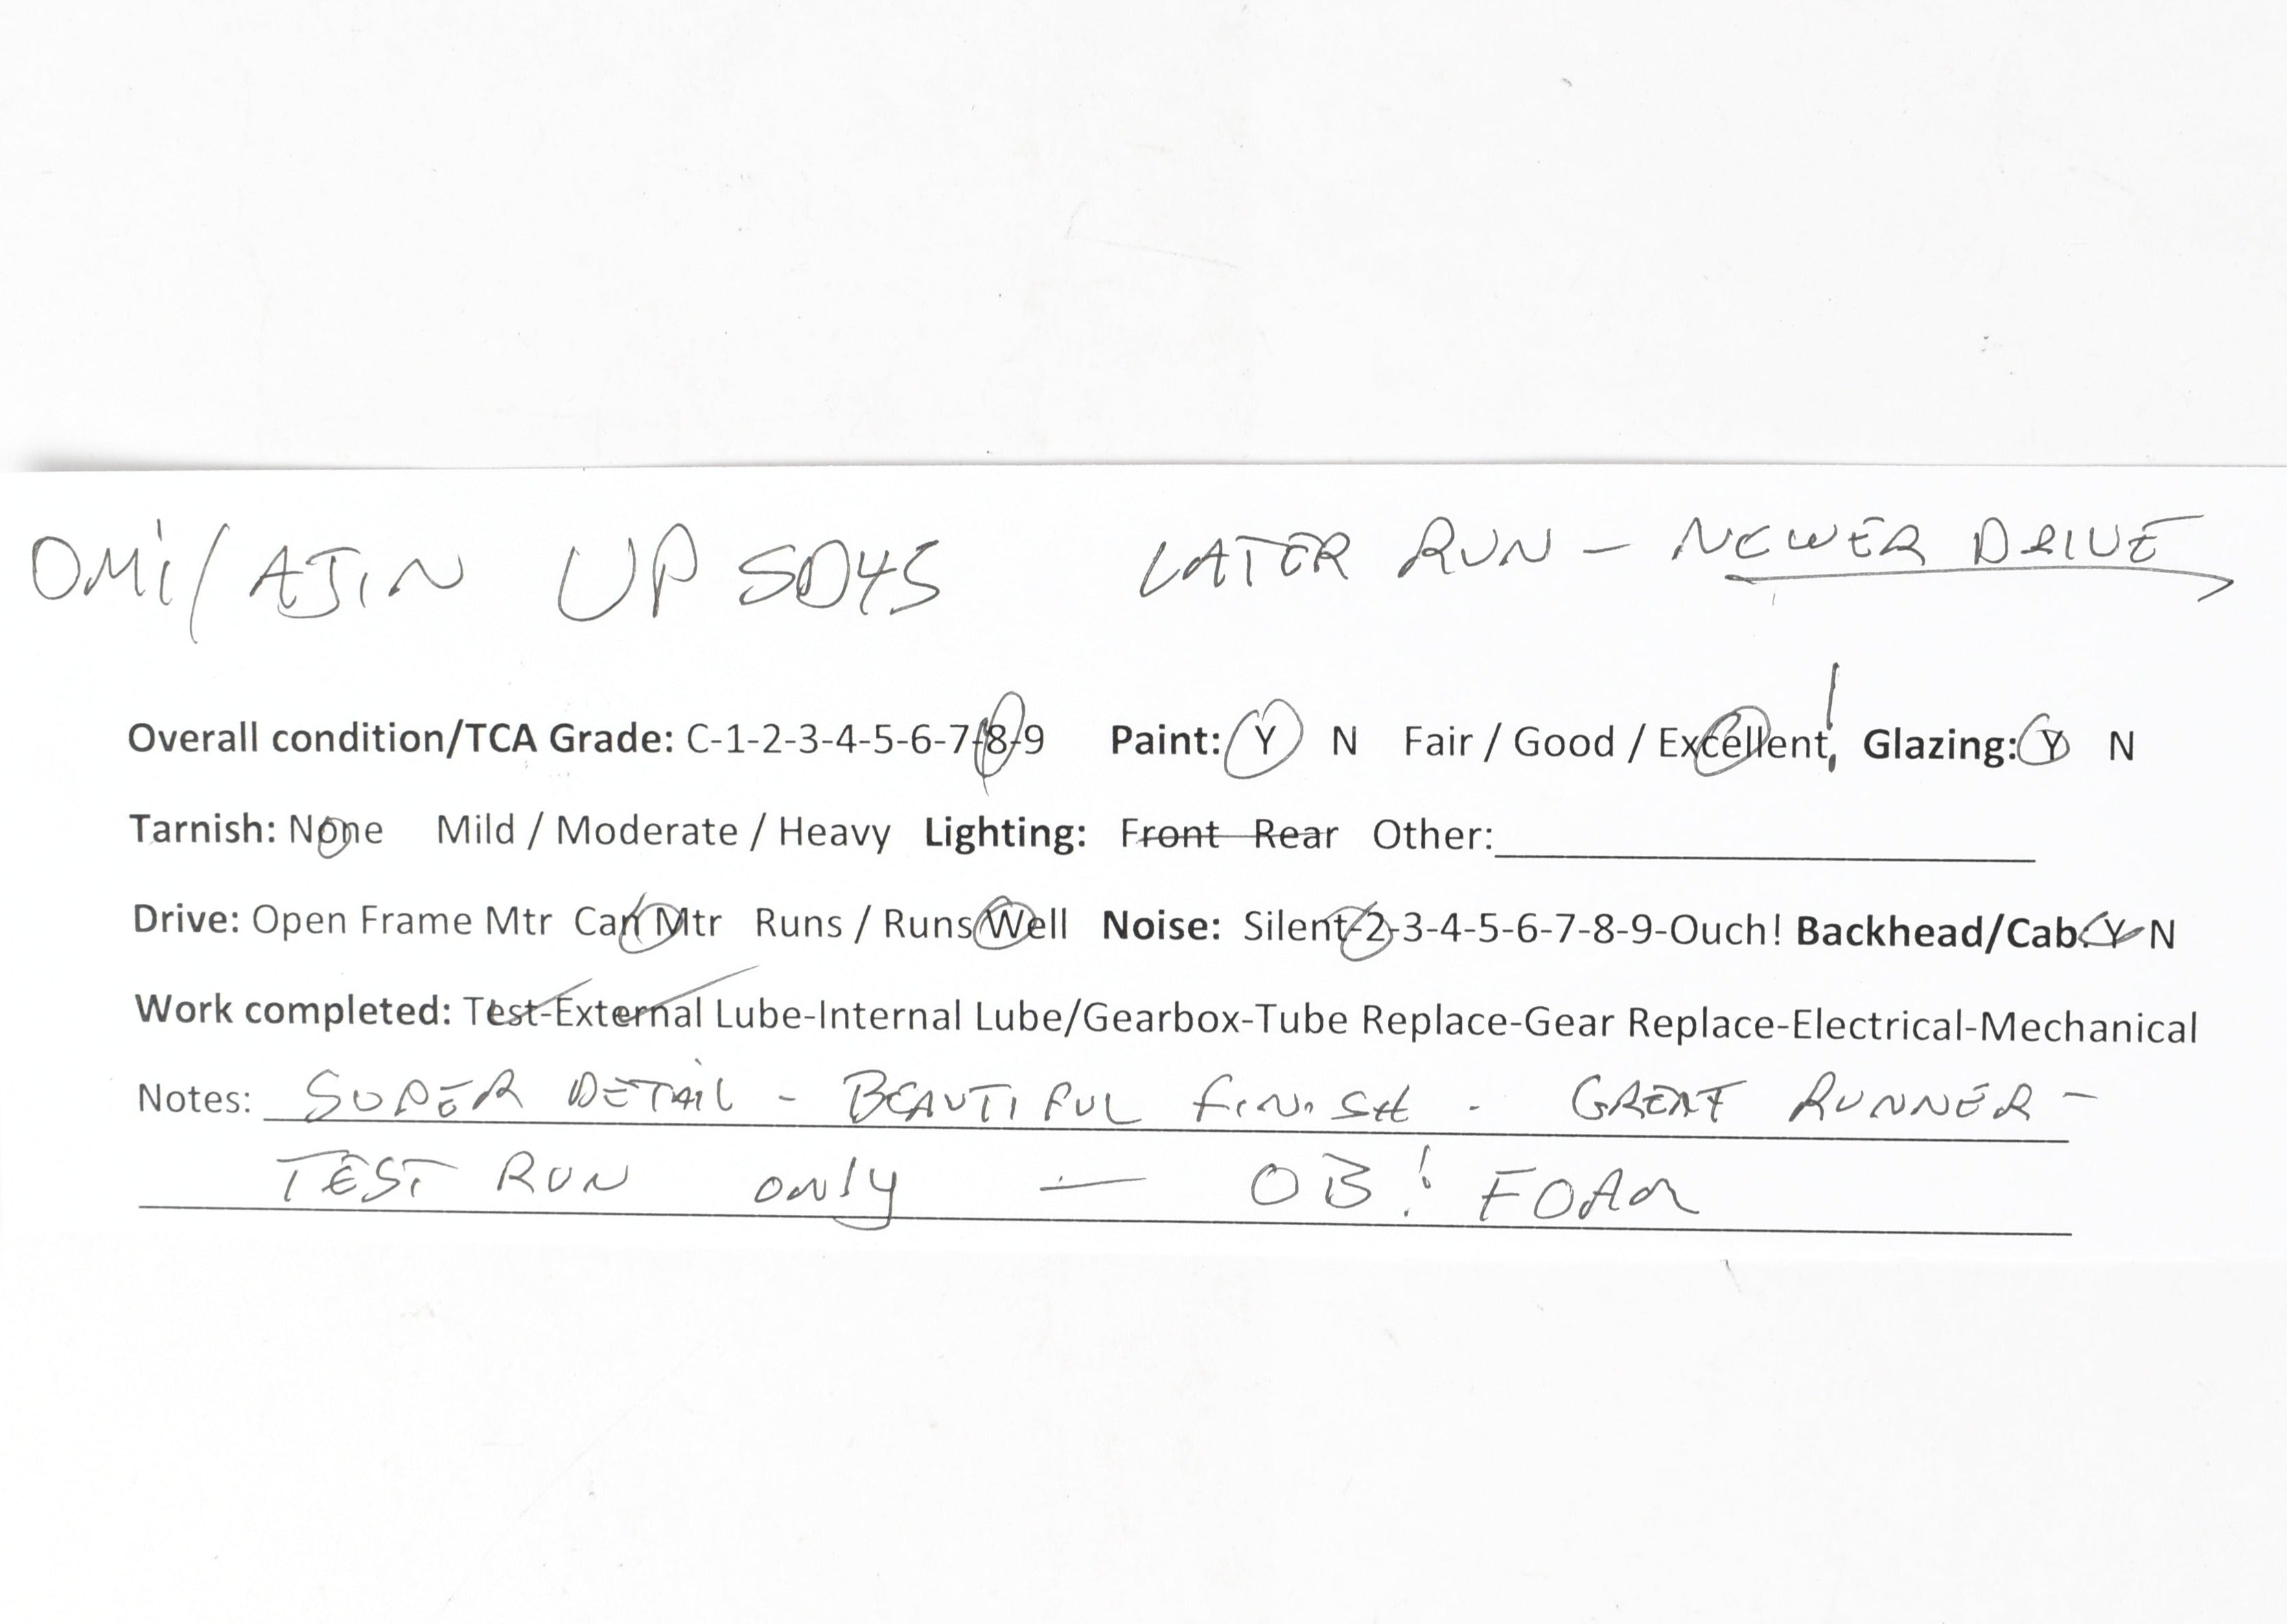 OMi/AJIN UP SD45 LATER RUN - NEWER DRIVE
Overall condition/TCA Grade: C-1-2-3-4-5-6-7-8-9 Paint: Y N Fair / Good / Excellent! Glazing: Y N
Tarnish: None Mild / Moderate / Heavy Lighting: Front Rear Other:
Drive: Open Frame Mtr Can Mtr Runs / Runs Well Noise: Silent-2-3-4-5-6-7-8-9-Ouch! Backhead/Cab: Y N
Work completed: Test-External Lube-Internal Lube/Gearbox-Tube Replace-Gear Replace-Electrical-Mechanical
Notes: SUPER DETAiL - BEAUTIFUL FINISH - GREAT RUNNER -
TEST RUN only - OB! FOAM